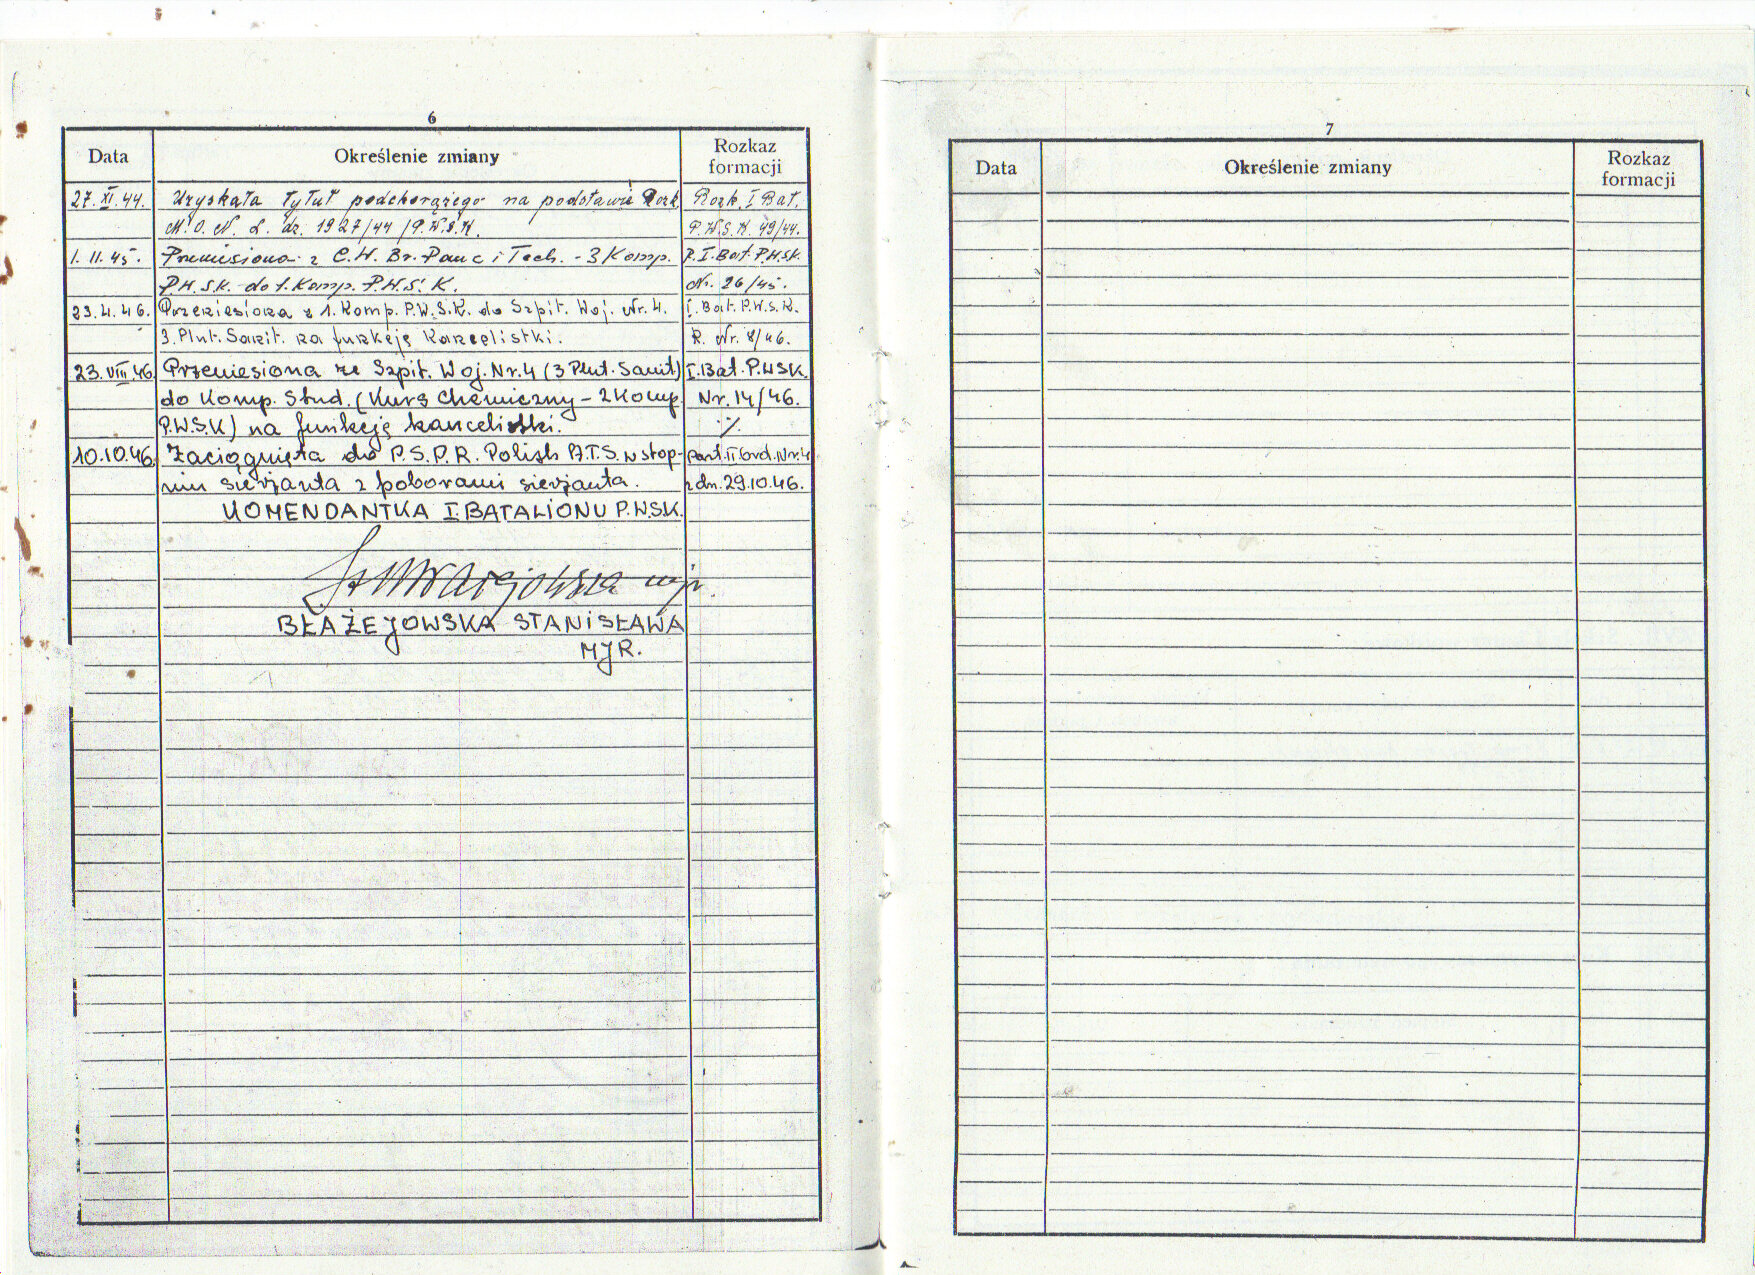 6
Data Określenie zmiany Rozkaz formacji
27.XI.44. Uzyskała tytuł podchorążego na podstawie Rozk. Rozk. I Bat.
M.O.N. L. dz. 1927/44/P.W.S.K. P.W.S.K. 49/44.
1.11.45. Przeniesiona z C.W. Br. Panc i Tech. - 3 Komp. R. I. Bat. P.W.S.K.
P.W.S.K. do 1. Komp. P.W.S.K. Nr. 26/45.
23.4.46. Przeniesiona z 1. Komp. P.W.S.K. do Szpit. Woj. Nr. 4. I. Bat. P.W.S.K.
3. Plut. Sanit. na funkcję kancelistki. R. Nr. 8/46.
23.VIII.46. Przeniesiona ze Szpit. Woj. Nr. 4 (3 Plut. Sanit) I. Bat. P.WSK.
do Komp. Stud. (Kurs Chemiczny - 2 Komp. Nr. 14/46.
P.W.S.K) na funkcję kancelistki. ./.
10.10.46. Zaciągnięta do P.S.P.R. Polish A.T.S. w stop- Part. II Ord. Nr. 4
niu sierżanta z poborami sierżanta. z dn. 29.10.46.
KOMENDANTKA I BATALIONU P.W.S.K.
BŁAŻEJOWSKA STANISŁAWA
MJR.
7
Data Określenie zmiany Rozkaz formacji